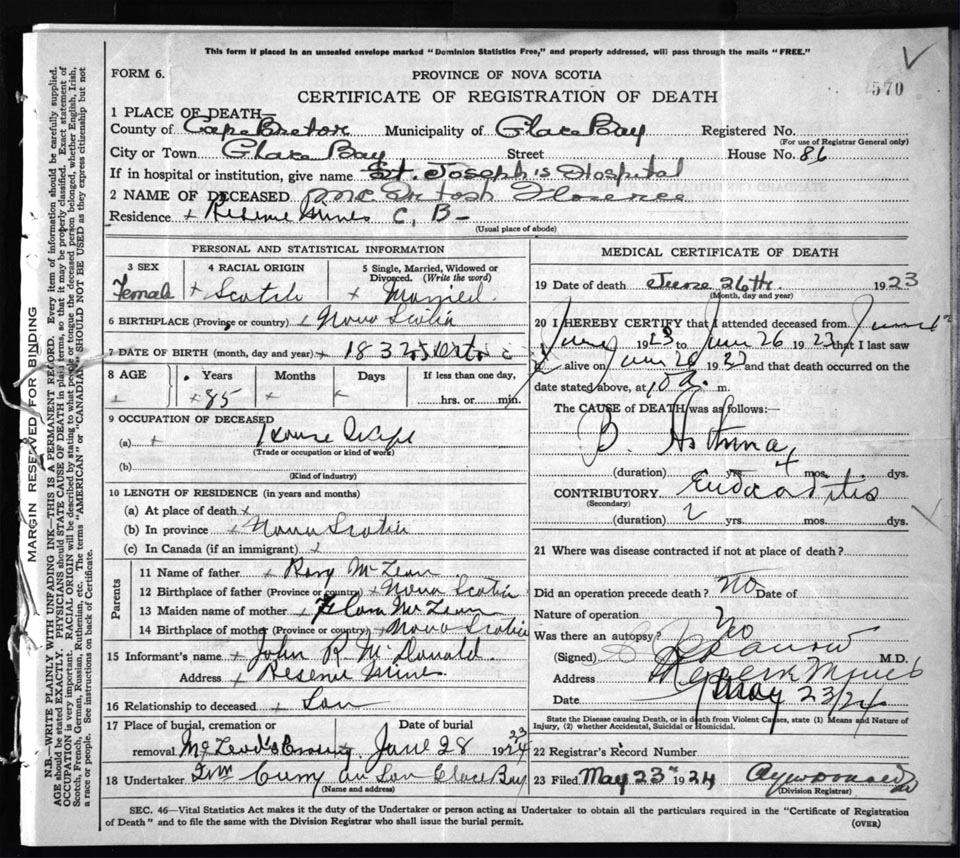 This form if placed in an unsealed envelope marked "Dominion Statistics Free," and properly addressed, will pass through the mails "FREE."
FORM 6.
PROVINCE OF NOVA SCOTIA
570
CERTIFICATE OF REGISTRATION OF DEATH
1 PLACE OF DEATH—
County of Cape Breton Municipality of Glace Bay Registered No.
(For use of Registrar General only)
City or Town Glace Bay Street House No. 86
If in hospital or institution, give name St. Joseph's Hospital
2 NAME OF DECEASED McIntosh Florence
Residence + Reserve Mines C, B—
(Usual place of abode)
PERSONAL AND STATISTICAL INFORMATION
3 SEX
Female
4 RACIAL ORIGIN
+ Scotch
5 Single, Married, Widowed or Divorced. (Write the word)
+ Married.
6 BIRTHPLACE (Province or country) + Nova Scotia
7 DATE OF BIRTH (month, day and year) +
8 AGE Years Months Days If less than one day,
+ 85 + + hrs. or min.
9 OCCUPATION OF DECEASED
(a) + House Wife
(Trade or occupation or kind of work)
(b)
(Kind of industry)
10 LENGTH OF RESIDENCE (in years and months)
(a) At place of death +
(b) In province + Nova Scotia
(c) In Canada (if an immigrant) +
Parents
11 Name of father + Rory McLean
12 Birthplace of father (Province or country) + Nova Scotia
13 Maiden name of mother + Flora McLean
14 Birthplace of mother (Province or country) + Nova Scotia
15 Informant's name + John R McDonald.
Address + Reserve Mines
16 Relationship to deceased + Son
17 Place of burial, cremation or removal Date of burial
McLeod's Crossing June 28 1924 23
18 Undertaker Curry Son Glace Bay
(Name and address)
MEDICAL CERTIFICATE OF DEATH
19 Date of death June 26th. 1923
(Month, day and year)
20 I HEREBY CERTIFY that I attended deceased from
June 1923 to June 26 1923 that I last saw
alive on June 26 1923 and that death occurred on the
date stated above, at 10 a. m.
The CAUSE of DEATH was as follows:—
B. Asthma
(duration) yrs. + mos. dys.
CONTRIBUTORY Endocarditis
(Secondary)
(duration) 2 yrs. mos. dys.
21 Where was disease contracted if not at place of death?
Did an operation precede death? No Date of
Nature of operation
Was there an autopsy? No
(Signed) M.D.
Address Reserve Mines
Date May 23/24
State the Disease causing Death, or in death from Violent Causes, state (1) Means and Nature of
Injury, (2) whether Accidental, Suicidal or Homicidal.
22 Registrar's Record Number
23 Filed May 23rd 1924
(Division Registrar)
SEC. 46—Vital Statistics Act makes it the duty of the Undertaker or person acting as Undertaker to obtain all the particulars required in the "Certificate of Registration
of Death" and to file the same with the Division Registrar who shall issue the burial permit.
(OVER)
MARGIN RESERVED FOR BINDING
N.B.—WRITE PLAINLY WITH UNFADING INK—THIS IS A PERMANENT RECORD. Every item of information should be carefully supplied.
AGE should be stated EXACTLY. PHYSICIANS should STATE CAUSE OF DEATH in plain terms, so that it may be properly classified. Exact statement of
OCCUPATION is very important. RACIAL ORIGIN will be described by stating to what people or tongue the deceased person belonged, whether English, Irish,
Scotch, French, German, Russian, Ruthenian, etc. The terms "AMERICAN" or "CANADIAN" SHOULD NOT BE USED as they express citizenship but not
a race or people. See instructions on back of Certificate.